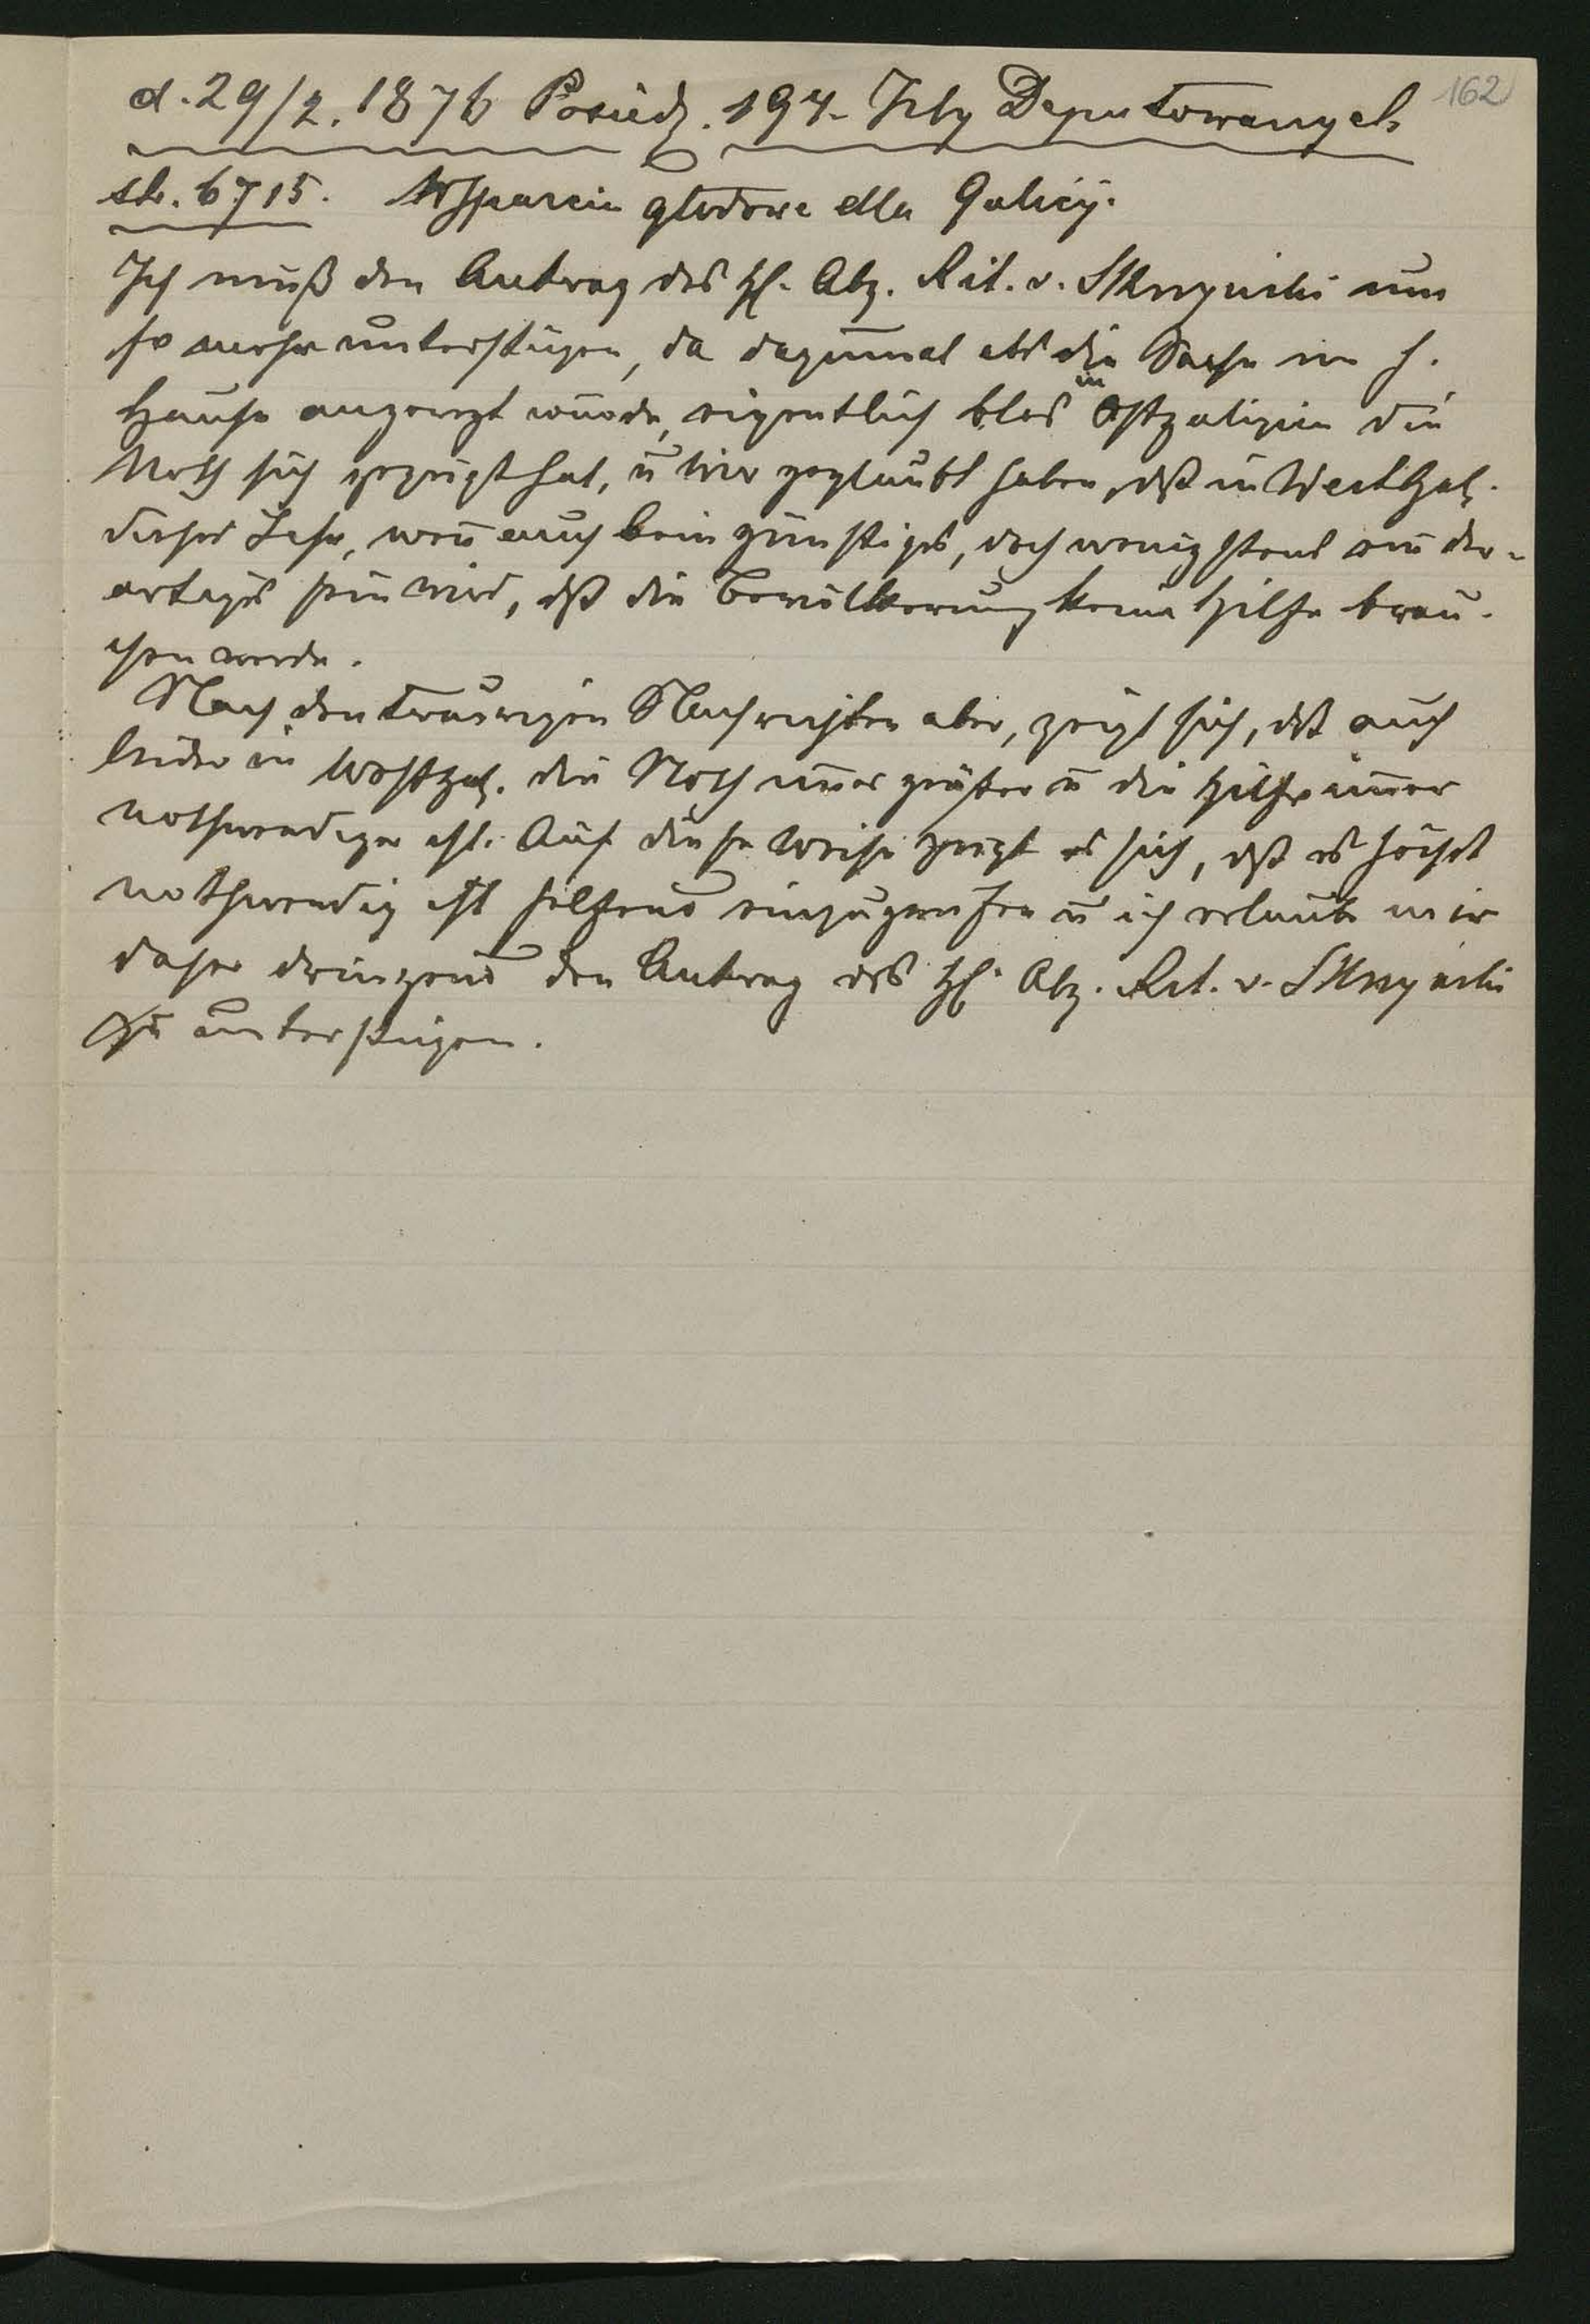 162
d. 29/2. 1876 Posiedz. 194. Izby Deputowanych
str. 6715. Wsparcie głodowe dla Galicyi.
Ich muß den Antrag des H. Abg. Rit. v. Skrzyński um
so mehr unterstützen, da dazumal als die Sache im h.
Hause angeregt wurde, eigentlich blos in Ostgalizien die
Noth sich gezeigt hat, ū wir geglaubt haben, dß in Westgal.
dieses Jahr, weñ auch kein günstiges, doch wenigstens ein der-
artiges sein wird, dß die Bevölkerung keine Hilfe brau-
chen werde.
Nach den traurigen Nachrichten aber, zeigt sich, dß auch
leider in Westgal. die Noth im̄er größer ū die Hilfe im̄er
nothwendiger ist. Auf diese Weise zeigt es sich, dß es höchst
nothwendig ist helfend einzugreifen ū ich erlaube mir
daher dringend den Antrag des H. Abg. Rit. v. Skrzyński
zu unterstützen.